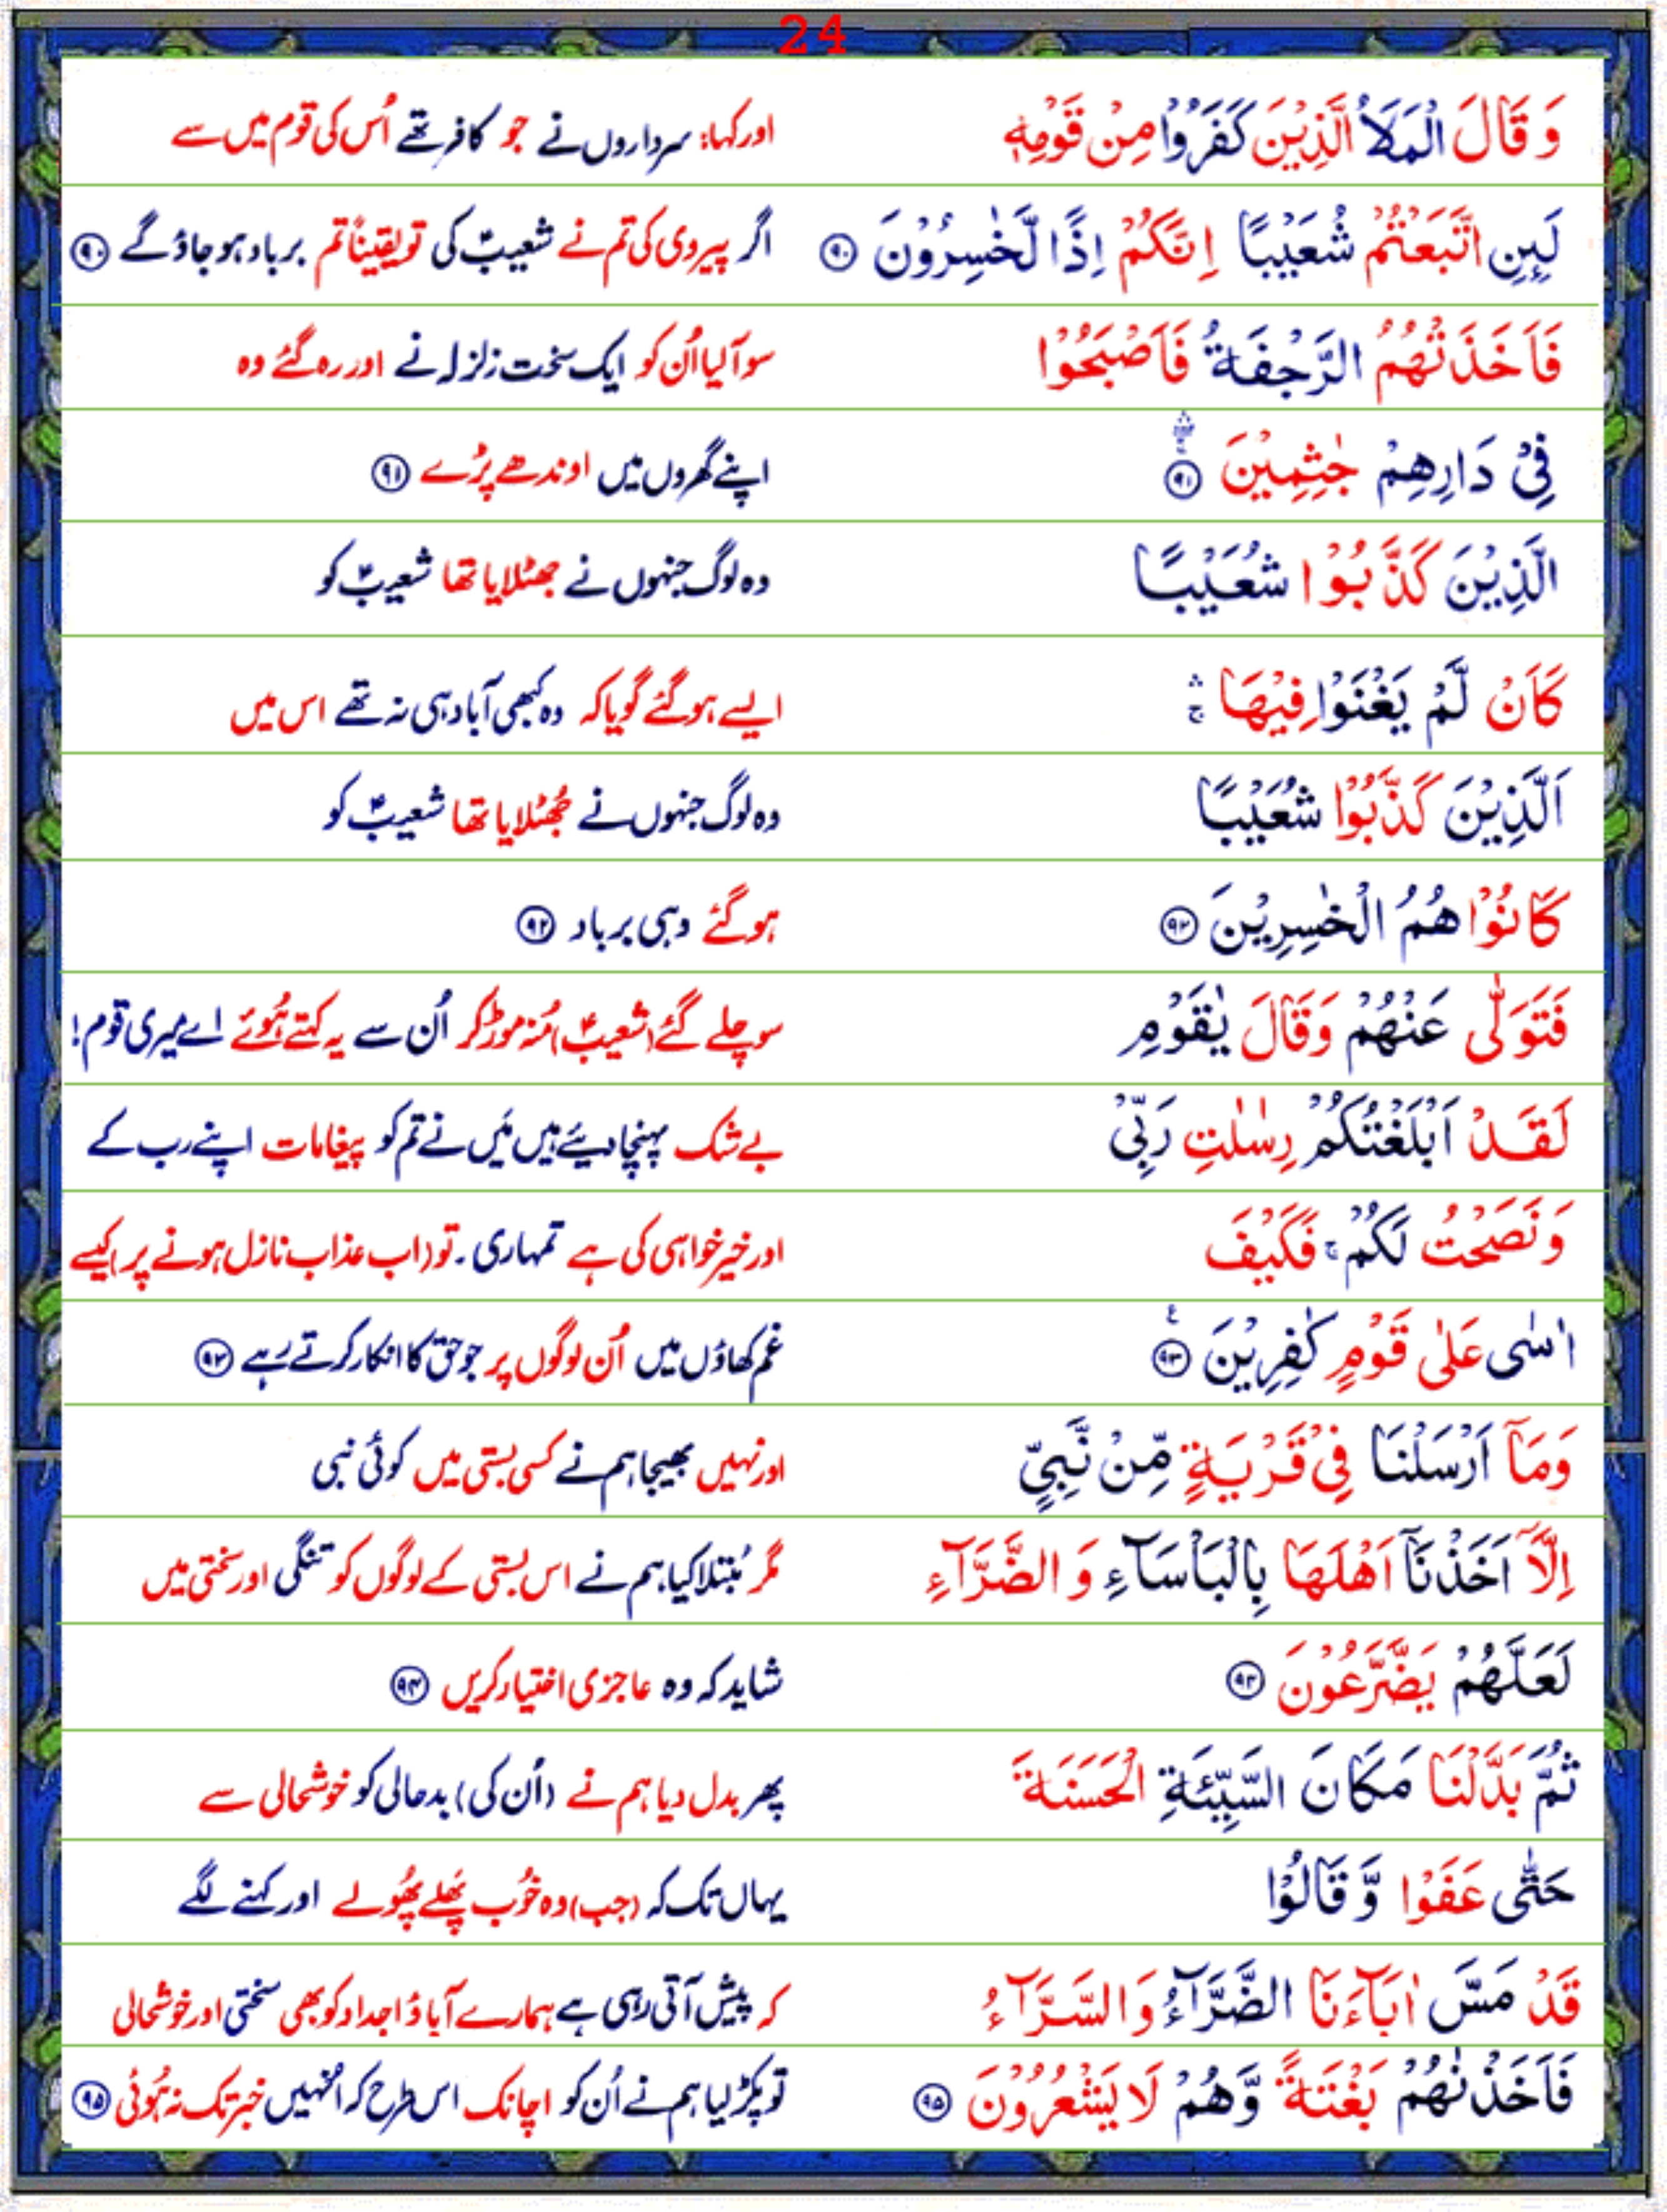 24
وَ قَالَ الْمَلَاُ الَّذِيْنَ كَفَرُوْا مِنْ قَوْمِهٖ اور کہا: سرداروں نے جو کافر تھے اُس کی قوم میں سے
لَىِٕنِ اتَّبَعْتُمْ شُعَيْبًا اِنَّكُمْ اِذًا لَّخٰسِرُوْنَ ۹۰ اگر پیروی کی تم نے شعیبؑ کی تو یقیناً تم برباد ہوجاؤ گے ۹۰
فَاَخَذَتْهُمُ الرَّجْفَةُ فَاَصْبَحُوْا سو آلیا اُن کو ایک سخت زلزلہ نے اور رہ گئے وہ
فِيْ دَارِهِمْ جٰثِمِيْنَ ۹۱ اپنے گھروں میں اوندھے پڑے ۹۱
الَّذِيْنَ كَذَّبُوْا شُعَيْبًا وہ لوگ جنہوں نے جھٹلایا تھا شعیبؑ کو
كَاَنْ لَّمْ يَغْنَوْا فِيْهَا ۛۚ ایسے ہوگئے گویا کہ وہ کبھی آباد ہی نہ تھے اس میں
اَلَّذِيْنَ كَذَّبُوْا شُعَيْبًا وہ لوگ جنہوں نے جُھٹلایا تھا شعیبؑ کو
كَانُوْا هُمُ الْخٰسِرِيْنَ ۹۲ ہوگئے وہی برباد ۹۲
فَتَوَلّٰى عَنْهُمْ وَقَالَ يٰقَوْمِ سو چلے گئے (شعیبؑ) مُنہ موڑ کر اُن سے یہ کہتے ہُوئے اے میری قوم!
لَقَدْ اَبْلَغْتُكُمْ رِسٰلٰتِ رَبِّيْ بے شک پہنچا دیئے ہیں مَیں نے تم کو پیغامات اپنے رب کے
وَنَصَحْتُ لَكُمْ ۚ فَكَيْفَ اور خیر خواہی کی ہے تمہاری۔ تو (اب عذاب نازل ہونے پر) کیسے
اٰسٰى عَلٰى قَوْمٍ كٰفِرِيْنَ ۹۳ غم کھاؤں میں اُن لوگوں پر جو حق کا انکار کرتے رہے ۹۳
وَمَاۤ اَرْسَلْنَا فِيْ قَرْيَةٍ مِّنْ نَّبِيٍّ اور نہیں بھیجا ہم نے کسی بستی میں کوئی نبی
اِلَّاۤ اَخَذْنَاۤ اَهْلَهَا بِالْبَاْسَآءِ وَ الضَّرَّآءِ مگر مُبتلا کیا ہم نے اس بستی کے لوگوں کو تنگی اور سختی میں
لَعَلَّهُمْ يَضَّرَّعُوْنَ ۹۴ شاید کہ وہ عاجزی اختیار کریں ۹۴
ثُمَّ بَدَّلْنَا مَكَانَ السَّيِّئَةِ الْحَسَنَةَ پھر بدل دیا ہم نے (اُن کی) بدحالی کو خوشحالی سے
حَتّٰى عَفَوْا وَّ قَالُوْا یہاں تک کہ (جب) وہ خُوب پَھلے پُھولے اور کہنے لگے
قَدْ مَسَّ اٰبَآءَنَا الضَّرَّآءُ وَ السَّرَّآءُ کہ پیش آتی رہی ہے ہمارے آباؤ اجداد کو بھی سختی اور خوشحالی
فَاَخَذْنٰهُمْ بَغْتَةً وَّهُمْ لَا يَشْعُرُوْنَ ۹۵ تو پکڑ لیا ہم نے اُن کو اچانک اس طرح کہ اُنہیں خبر تک نہ ہُوئی ۹۵